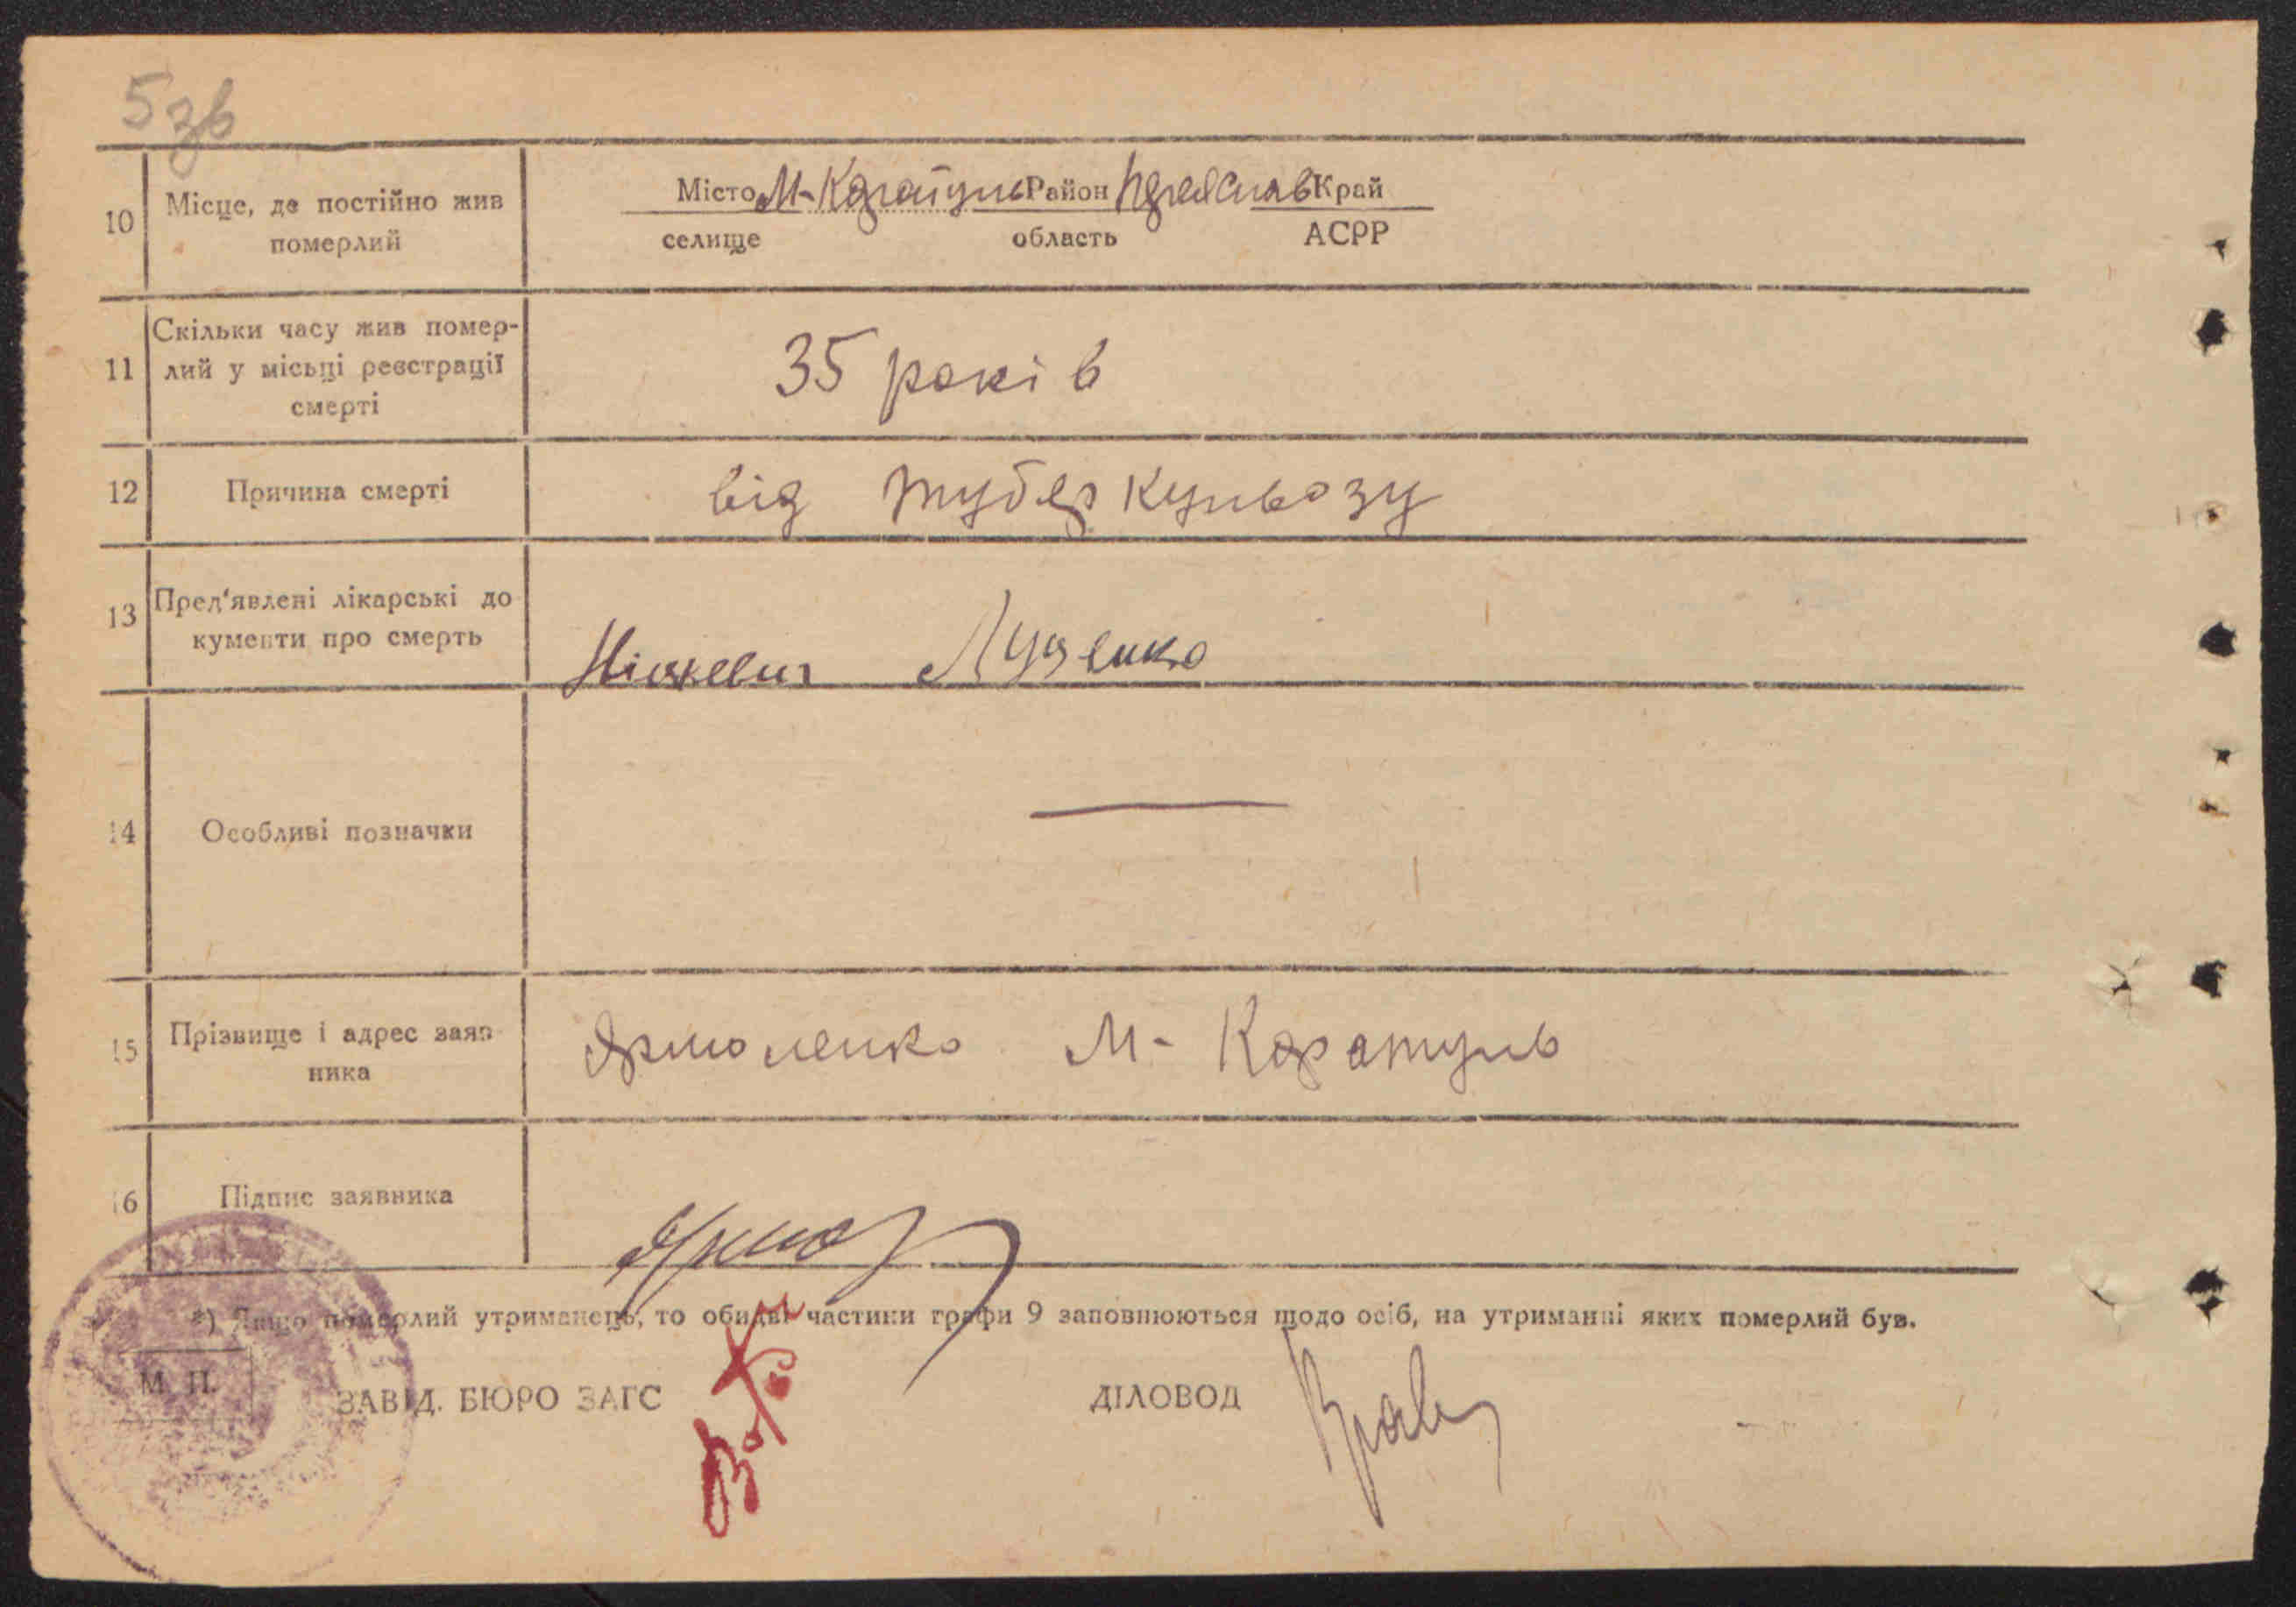 5 зв
10 Місце, де постійно жив померлий
Місто М-Каратуль Район Переяслав Край
селище область АСРР
11 Скільки часу жив помер-
лий у місьці реєстрації
смерті
35 років
12 Причина смерті
від туберкульозу
13 Пред'явлені лікарські до
кументи про смерть
Луценко
14 Особливі позначки
—
15 Прізвище і адрес заяв
ника
Ярмоленко М- Каратуль
16 Підпис заявника
*) Якщо померлий утриманець, то обидві частини графи 9 заповнюються щодо осіб, на утриманні яких померлий був.
М. П.
ЗАВІД. БЮРО ЗАГС ДІЛОВОД